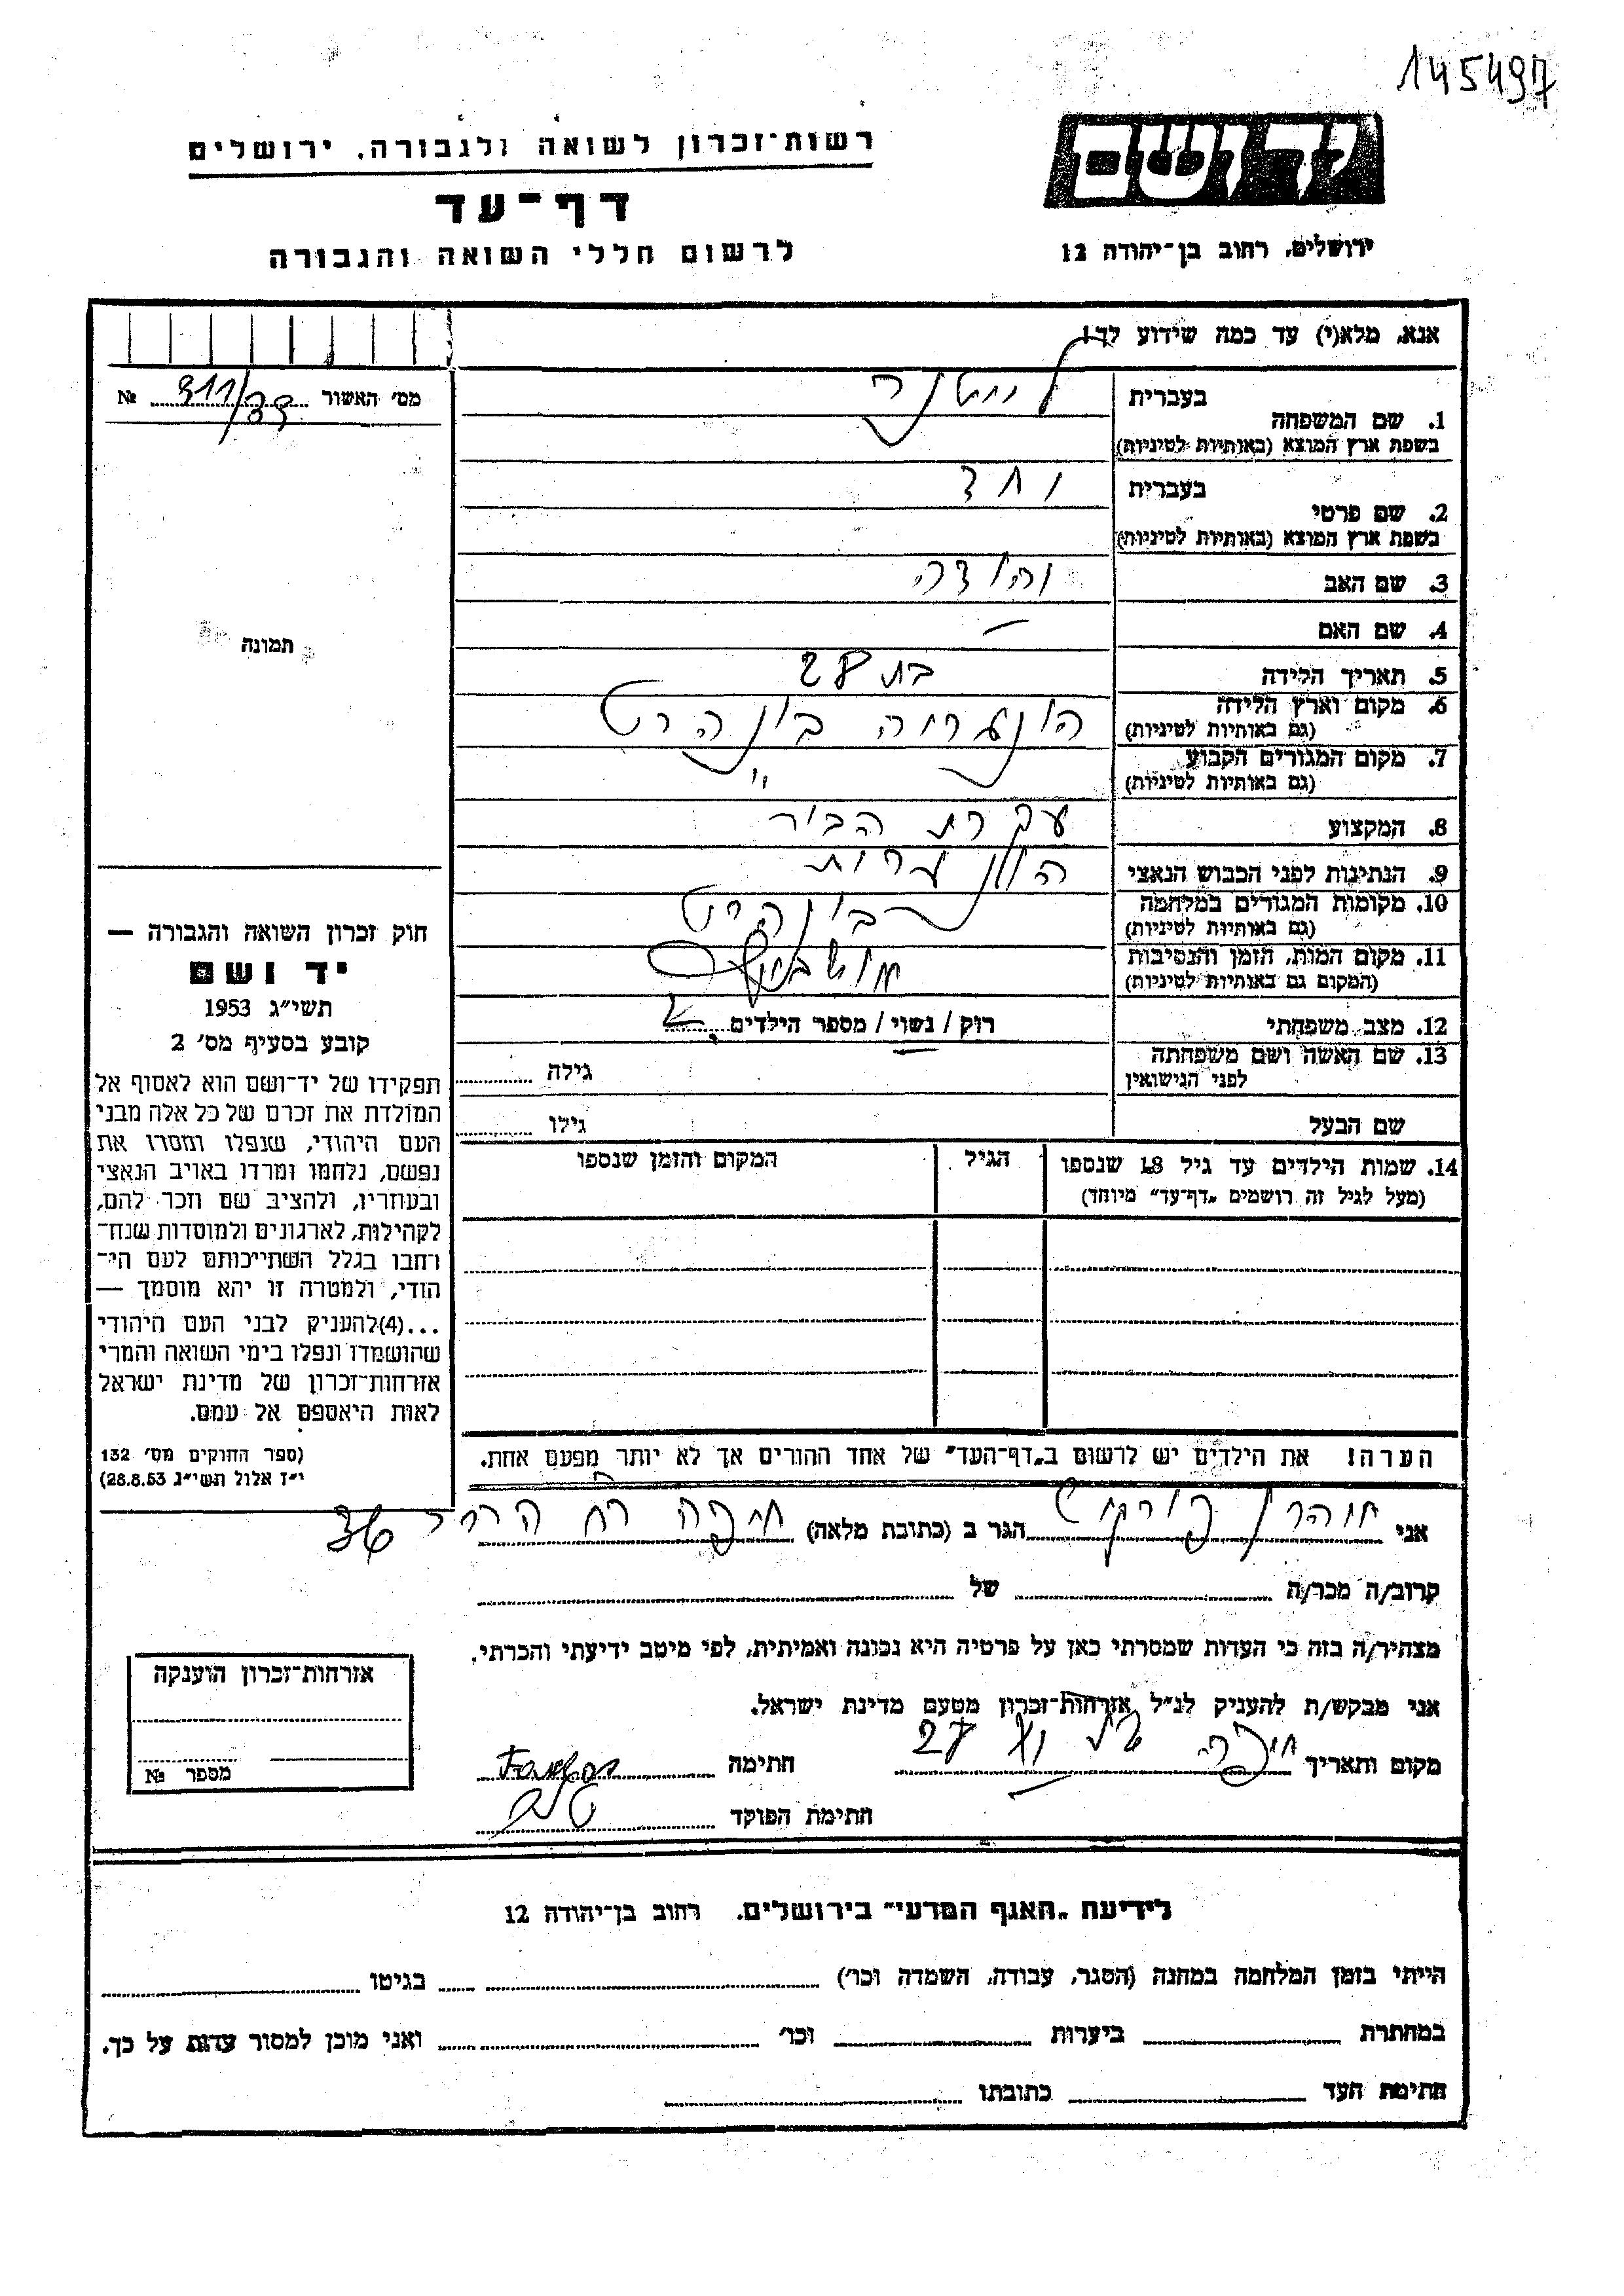 145497
יד ושם
רשות־זכרון לשואה ולגבורה, ירושלים
דף־עד
ירושלים, רחוב בן־יהודה 12
לרשום חללי השואה והגבורה
אנא, מלא(י) עד כמה שידוע לך!
מס׳ האשור № 311/33
1. שם המשפחה
בעברית
בשפת ארץ המוצא (באותיות לטיניות)
2. שם פרטי
בעברית
בשפת ארץ המוצא (באותיות לטיניות)
3. שם האב יהודה
4. שם האם —
5. תאריך הלידה בת 28
6. מקום וארץ הלידה הונגריה
(גם באותיות לטיניות)
7. מקום המגורים הקבוע "
(גם באותיות לטיניות)
8. המקצוע עקרת הבית
9. הנתינות לפני הכבוש הנאצי הונגרית
10. מקומות המגורים במלחמה
(גם באותיות לטיניות)
11. מקום המות, הזמן והנסיבות
(המקום גם באותיות לטיניות)
12. מצב משפחתי רוק / נשוי / מספר הילדים
13. שם האשה ושם משפחתה
לפני הנישואין
גילה
שם הבעל גילו
14. שמות הילדים עד גיל 18 שנספו
(מעל לגיל זה רושמים „דף־עד״ מיוחד)
הגיל
המקום והזמן שנספו
הערה! את הילדים יש לרשום ב„דף־העד״ של אחד ההורים אך לא יותר מפעם אחת.
תמונה
חוק זכרון השואה והגבורה —
יד ושם
תשי״ג 1953
קובע בסעיף מס׳ 2
תפקידו של יד־ושם הוא לאסוף אל
המולדת את זכרם של כל אלה מבני
העם היהודי, שנפלו ומסרו את
נפשם, נלחמו ומרדו באויב הנאצי
ובעוזריו, ולהציב שם וזכר להם,
לקהילות, לארגונים ולמוסדות שנח־
רחבו בגלל השתייכותם לעם הי־
הודי, ולמטרה זו יהא מוסמך —
...(4)להעניק לבני העם היהודי
שהושמדו ונפלו בימי השואה והמרי
אזרחות־זכרון של מדינת ישראל
לאות היאספם אל עמם.
(ספר החוקים מס׳ 132
י״ז אלול תשי״ג 28.8.53)
אני הגר ב (כתובת מלאה) חיפה רח 36
קרוב/ה מכר/ה של
מצהיר/ה בזה כי העדות שמסרתי כאן על פרטיה היא נכונה ואמיתית, לפי מיטב ידיעתי והכרתי.
אני מבקש/ת להעניק לנ״ל אזרחות־זכרון מטעם מדינת ישראל.
מקום ותאריך חיפה 27 חתימה
חתימת הפוקד
אזרחות־זכרון הוענקה
מספר №
לידיעת „האגף המדעי״ בירושלים. רחוב בן־יהודה 12
הייתי בזמן המלחמה במחנה (הסגר, עבודה, השמדה וכו׳) בגיטו
במחתרת ביערות וכו׳ ואני מוכן למסור עדות על כך.
חתימת העד כתובתו